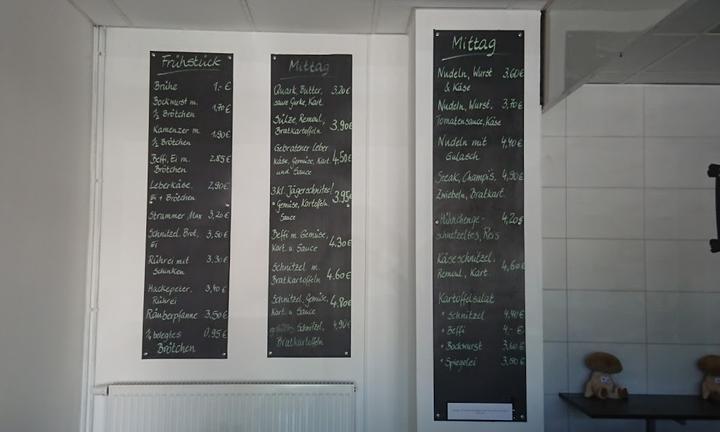 Frühstück
Brühe 1.- €
Bockwurst m. 1,70 €
½ Brötchen
Kamenzer m. 1.90 €
½ Brötchen
Beffi, Ei m. 2.85 €
Brötchen
Leberkäse, 2,90 €
Ei + Brötchen
Strammer Max 3,20 €
Schnitzel, Brot, 3,50 €
Ei
Rührei mit 3.30 €
Schinken
Hackepeter, 3,40 €
Rührei
Räuberpfanne 3.50 €
½ belegtes 0.95 €
Brötchen
Mittag
Quark, Butter, 3.20 €
saure Gurke, Kart.
Sülze, Remoul., 3,90 €
Bratkartoffeln
Gebratener Leber 4.50 €
Käse, Gemüse, Kart.
und Sauce
3 kl. Jägerschnitzel 3.95 €
Gemüse, Kartoffeln
Sauce
Beffi m. Gemüse, 4.30 €
Kart. u. Sauce
Schnitzel m. 4.60 €
Bratkartoffeln
Schnitzel, Gemüse, 4.80 €
Kart. u. Sauce
Schnitzel, 4,90 €
Bratkartoffeln
Mittag
Nudeln, Wurst 3.60 €
& Käse
Nudeln, Wurst, 3,70 €
Tomatensauce, Käse
Nudeln mit 4,40 €
Gulasch
Steak, Champis, 4,90 €
Zwiebeln, Bratkart.
Hühnchenge- 4,20 €
schnetzeltes, Reis
Käseschnitzel, 4,60 €
Remoul., Kart.
Kartoffelsalat
* Schnitzel 4,40 €
* Beffi 4,- €
* Bockwurst 3,60 €
* Spiegelei 3,50 €